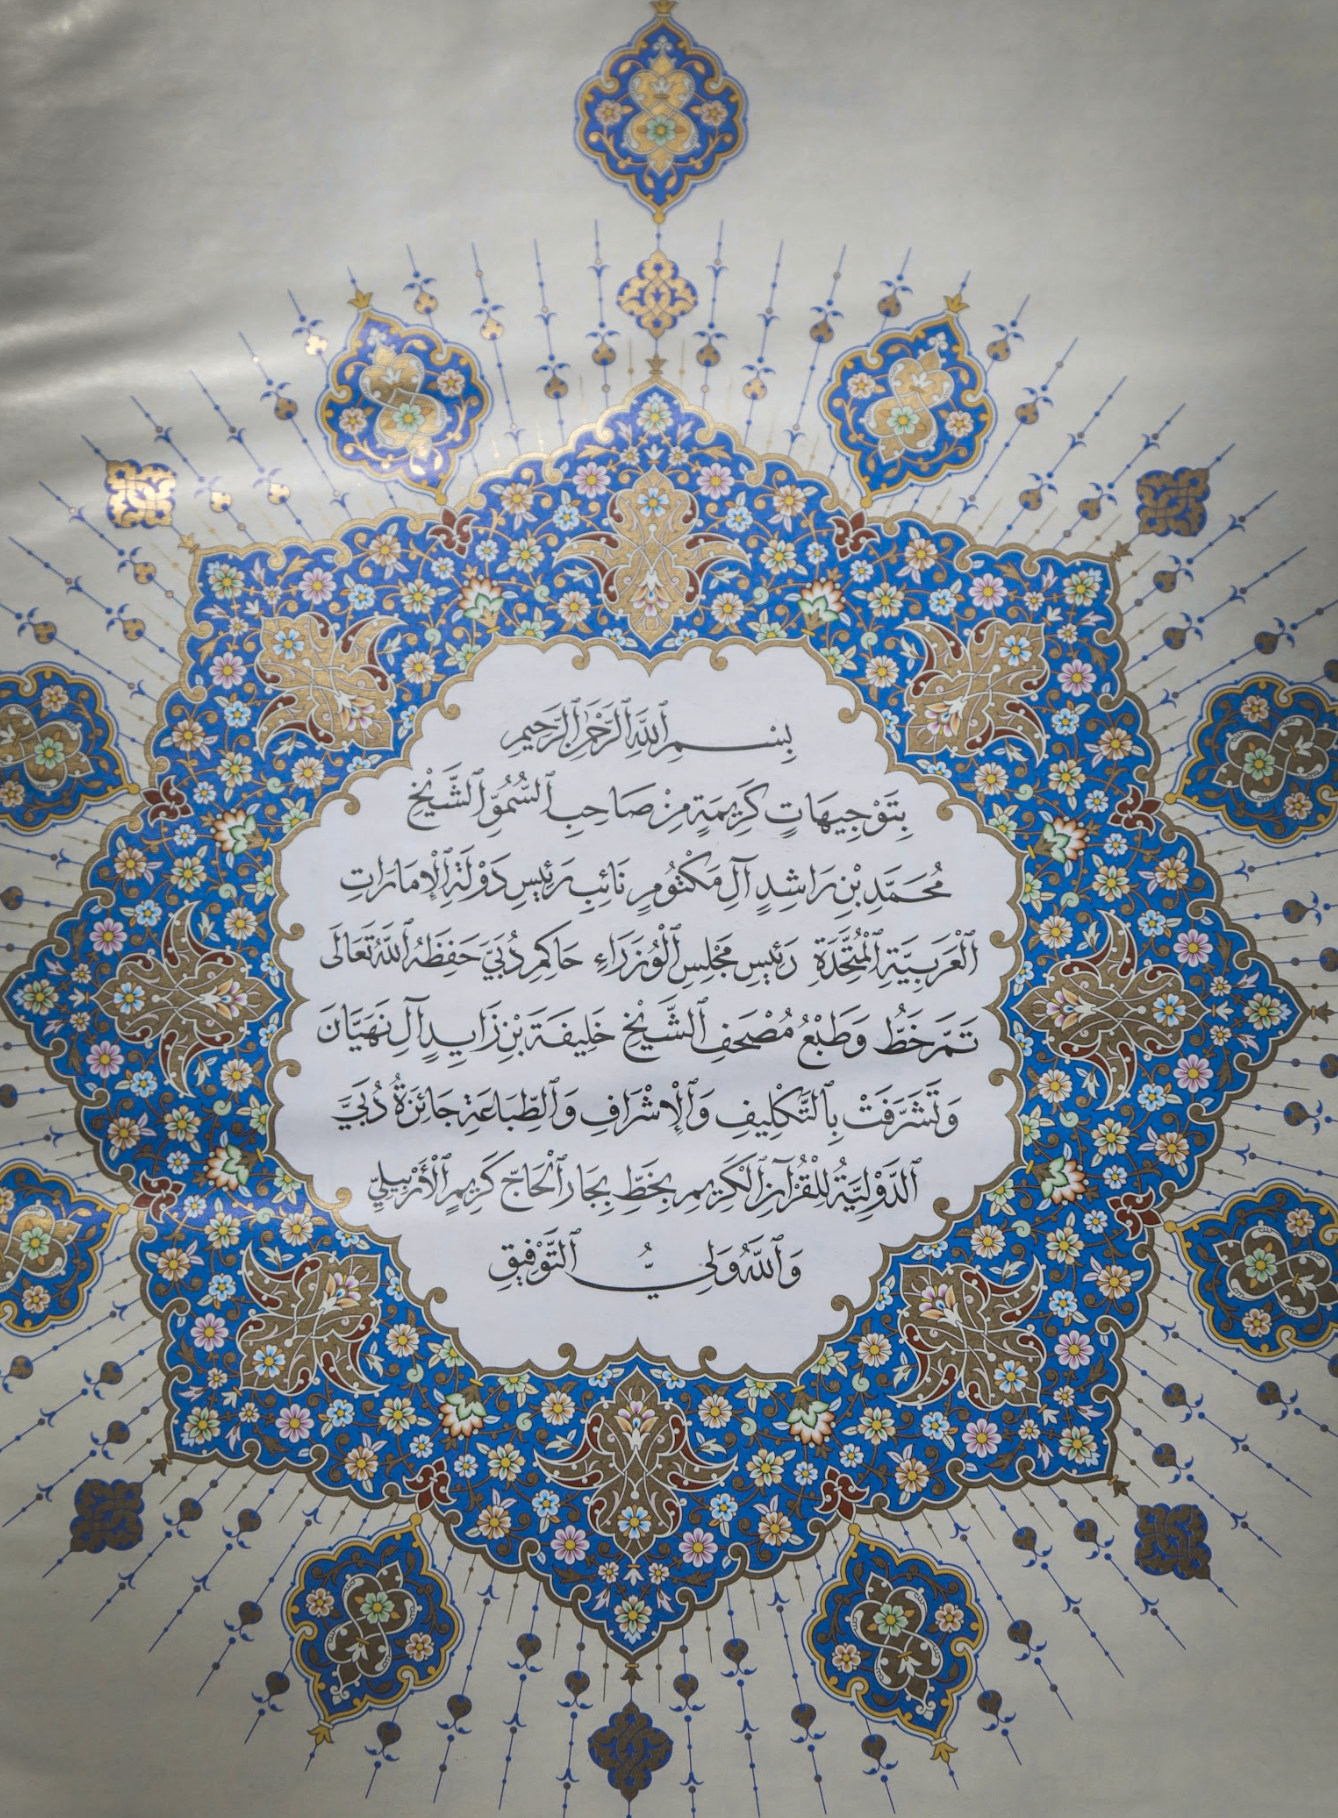 بِسْمِ ٱللَّهِ ٱلرَّحْمَٰنِ ٱلرَّحِيمِ
بِتَوْجِيهَاتٍ كَرِيمَةٍ مِنْ صَاحِبِ ٱلسُّمُوِّ ٱلشَّيْخِ
مُحَمَّدِ بْنِ رَاشِدٍ آلِ مَكْتُومٍ نَائِبِ رَئِيسِ دَوْلَةِ ٱلْإِمَارَاتِ
ٱلْعَرَبِيَّةِ ٱلْمُتَّحَدَةِ رَئِيسِ مَجْلِسِ ٱلْوُزَرَاءِ حَاكِمِ دُبَيَّ حَفِظَهُ ٱللَّهُ تَعَالَى
تَمَّ خَطُّ وَطَبْعُ مُصْحَفِ ٱلشَّيْخِ خَلِيفَةَ بْنِ زَايِدٍ آلِ نَهَيَانَ
وَتَشَرَّفَتْ بِٱلتَّكْلِيفِ وَٱلْإِشْرَافِ وَٱلطِّبَاعَةِ جَائِزَةُ دُبَيَّ
ٱلدَّوْلِيَّةُ لِلْقُرْآنِ ٱلْكَرِيمِ بِخَطِّ بِجَار ٱلْحَاجّ كَرِيمٍ ٱلْأَرْبِيلِيِّ
وَٱللَّهُ وَلِيُّ ٱلتَّوْفِيقِ